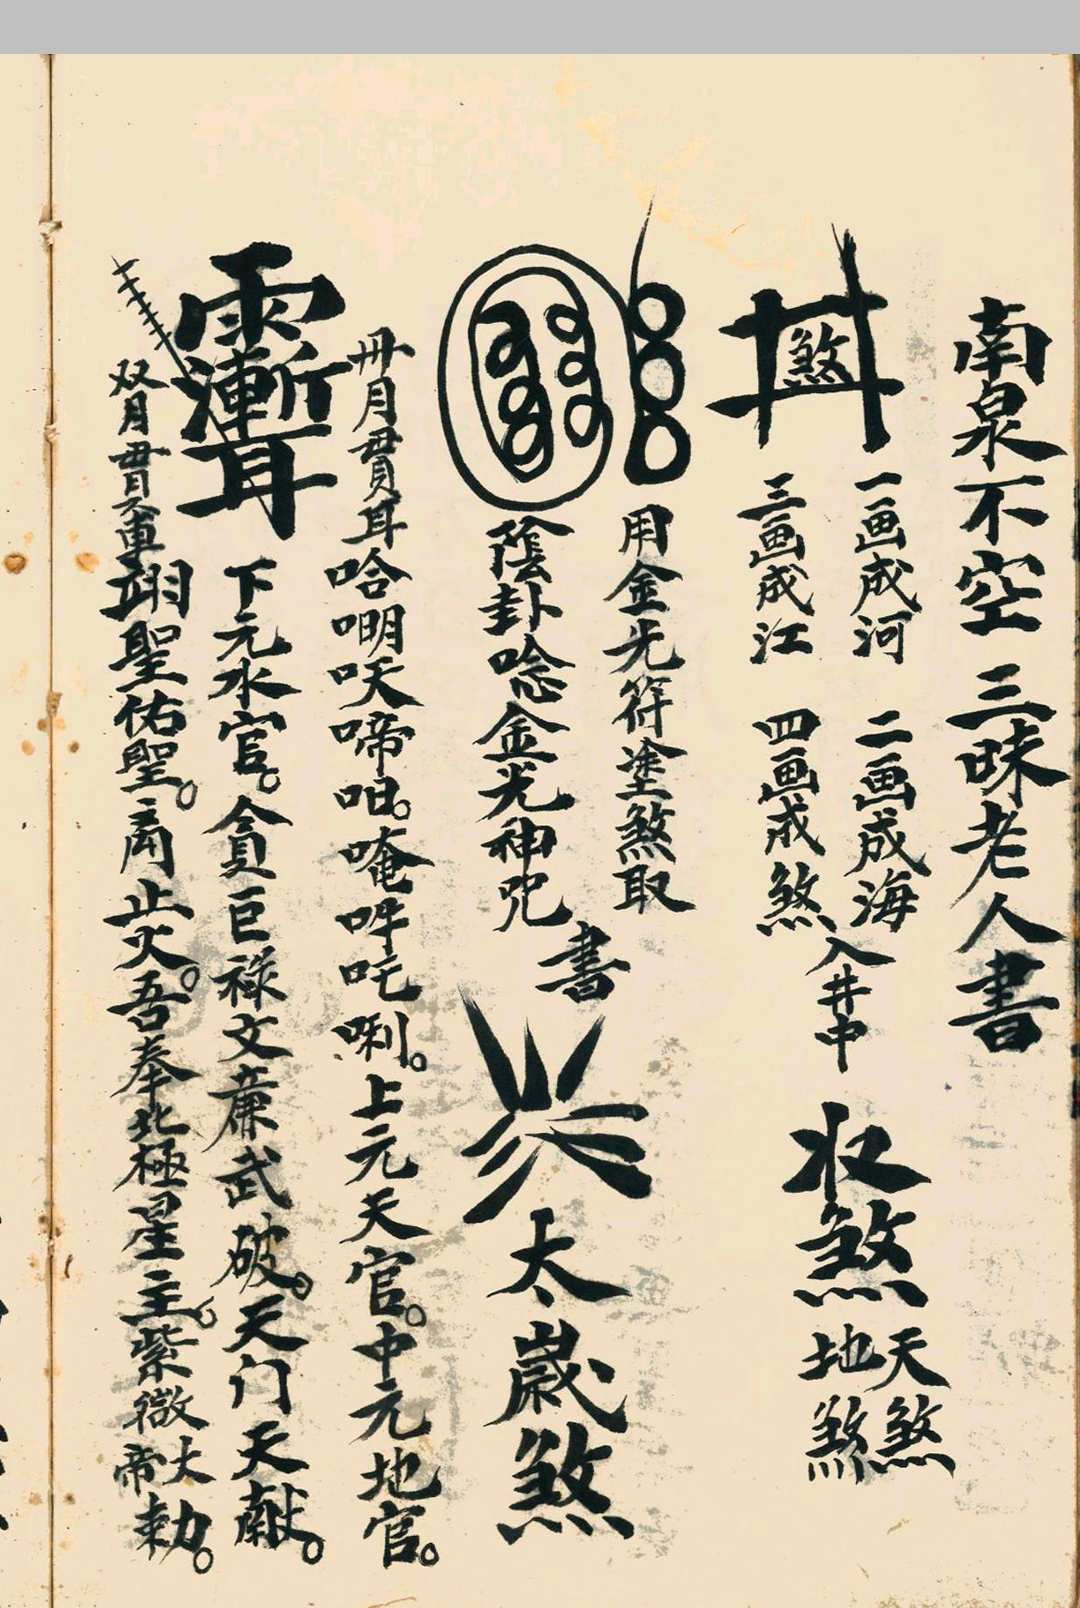 南泉不空三昧老人書
煞
一画成河 二画成海
三画成江 四画成煞
入井中
收煞
天煞
地煞
用金光符塗煞取
陰卦唸金光神咒
書
太歲煞
冊月貫耳
哈𠵼𠯟啼呾。唵吽吒唎。上元天官。中元地官。
下元水官。貪巨祿文廉武破。天门天獻。
双月
翊聖佑聖。
火。吾奉北極星主。紫微大帝勅。